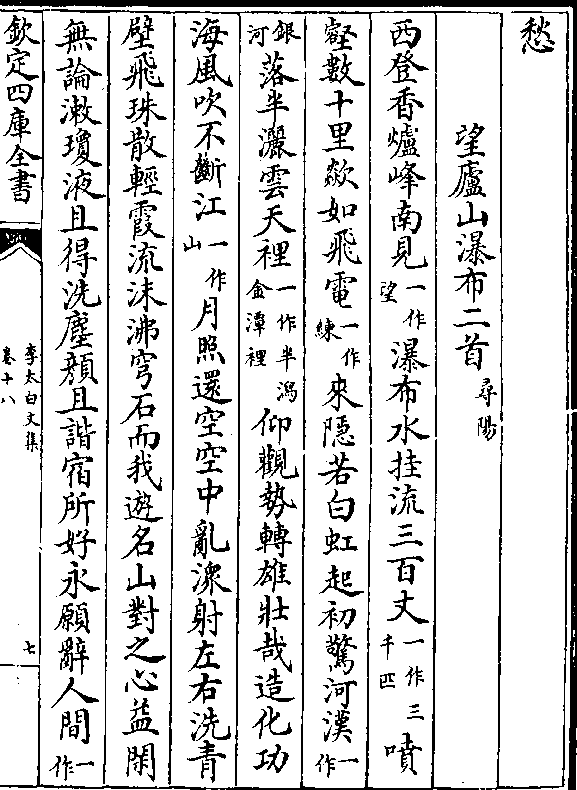 愁
望廬山瀑布二首尋陽
西登香爐峰南見一作望瀑布水挂流三百丈一作三千匹噴
壑數十里歘如飛電一作練來隱若白虹起初驚河漢一作
銀河落半灑雲天裡一作半瀉金潭裡仰觀勢轉雄壯哉造化功
海風吹不斷江一作山月照還空空中亂潨射左右洗青
壁飛珠散輕霞流沫沸穹石而我遊名山對之心益閑
無論漱瓊液且得洗塵顔且諧宿所好永願辭人間一作
欽定四庫全書
李太白文集
卷十八
七